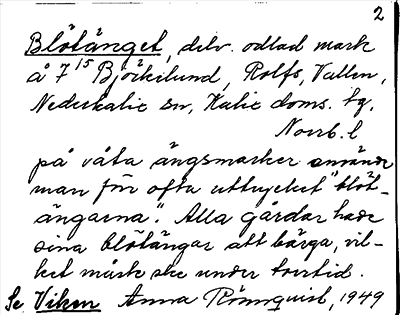 2
Blötänget, delv. odlad mark
å 7¹⁵ Björkilund, Rolfs, Vallen,
Nederkalix sn, Kalix doms. tg,
Norrb. l
på våta ängsmarker använde
man för ofta uttrycket "blöt-
ängarna". Alla gårdar hade
sina blötängar att bärga, vil-
ket måste ske under torrtid.
Se Viken Anna Rönnquist, 1949